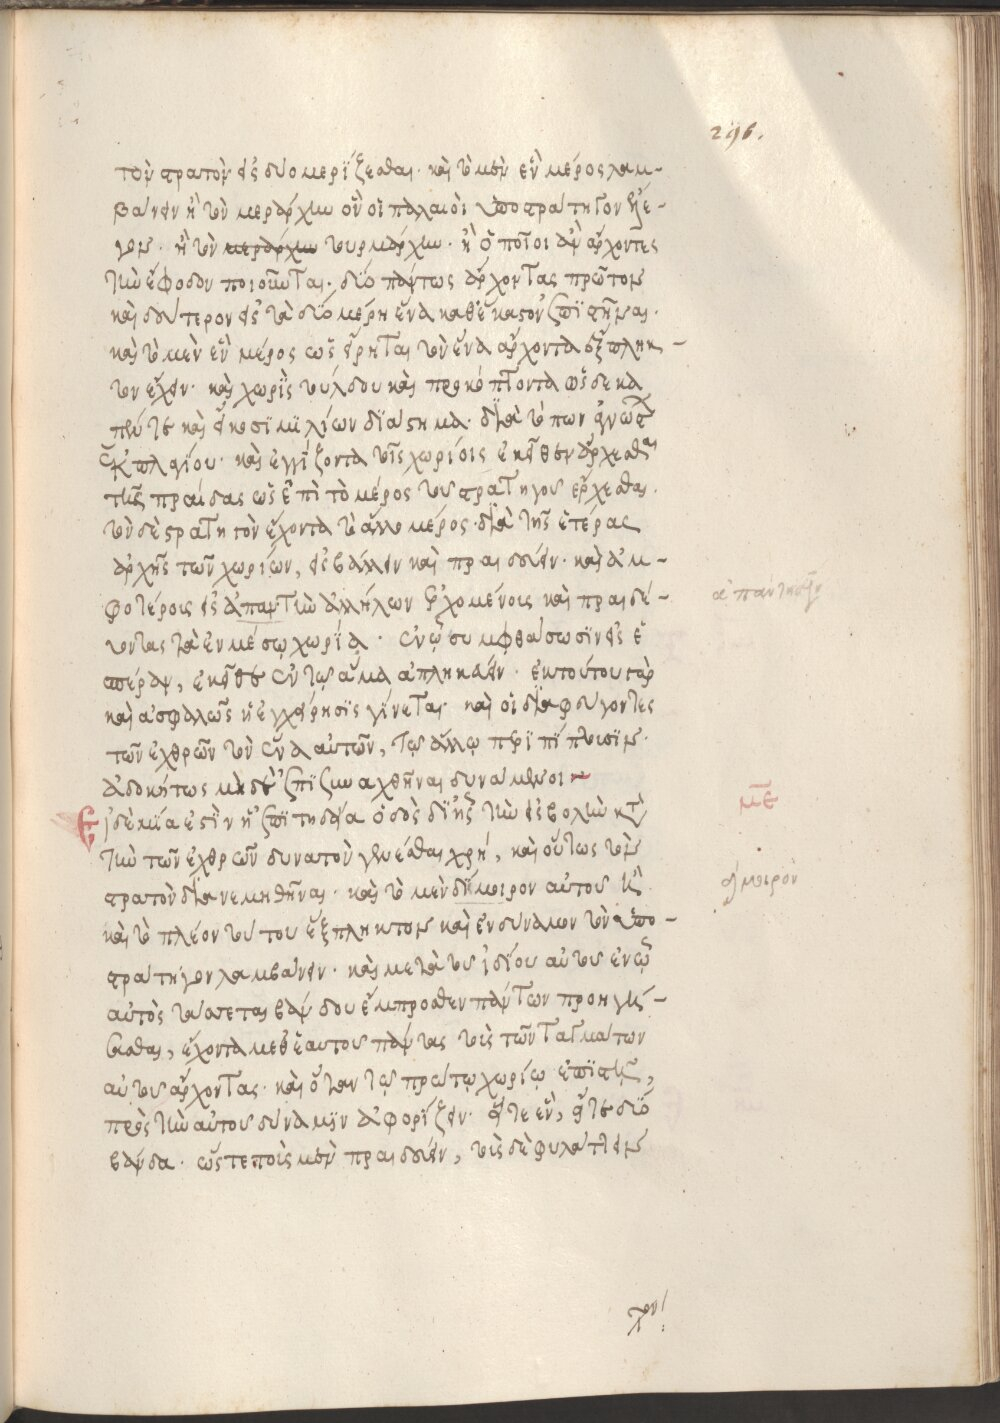 296.
τὸν στρατὸν εἰς δύο μερίζεσθαι· καὶ τὸ μὲν ἓν μέρος λαμ-
βάνειν ἢ τὸν μεράρχην ὃν οἱ παλαιοὶ ὑποστράτηγον ἔλε-
γον· ἢ τὸν μεράρχην τουρμάρχην· ἢ ὁποῖοι ἂν ἄρχοντες
τὴν ἔφοδον ποιοῦνται· δύο πάντως ἄρχοντας πρῶτον
καὶ δεύτερον εἰς τὰ δύο μέρη ἕνα καθ' ἕκαστον ἐπιστῆσαι·
καὶ τὸ μὲν ἓν μέρος ὡς εἴρηται τὸν ἕνα ἄρχοντα ἔξπληκ-
τον ἔχειν· καὶ χωρὶς τούλδου καὶ προκόπτοντα ὡς δεκα
πέντε καὶ εἴκοσι μιλίων διάστημα διὰ τόπων
ἐκ πλαγίου· καὶ ἐγγίζοντα τοῖς χωρίοις ἐκεῖθεν ἄρχεσθαι
τῆς πραίδας ὡς ἐπὶ τὸ μέρος τοῦ στρατηγοῦ ἔρχεσθαι·
τὸν δὲ στρατηγὸν ἔχοντα τὸ ἄλλο μέρος διὰ τῆς ἑτέρας
ἀρχῆς τῶν χωρίων, εἰσβάλλειν καὶ πραιδεύειν· καὶ ἀμ-
φοτέροις εἰς ἀπαντὴν ἀλλήλων ἐρχομένοις καὶ πραιδεύ-
οντας τὰ ἐν μέσῳ χωρία· ἐν ᾧ συμφθάσωσιν εἰς ἑ
σπέραν, ἐκεῖσε ἐν τῷ ἅμα ἀπληκεύειν· ἐκ τούτου γὰρ
καὶ ἀσφαλῶς ἡ ἐγχείρησις γίνεται· καὶ οἱ διαφεύγοντες
τῶν ἐχθρῶν τὸν ἕνα αὐτῶν, τῷ ἄλλῳ περιπίπτουσιν·
ἀδοκήτως μηδὲ ἐπισυναχθῆναι δυνάμενοι ~
με
Εἰ δὲ μία ἐστὶν ἡ ἐπιτηδεία ὁδὸς δι' ἧς τὴν εἰσβολὴν κατὰ
τὴν τῶν ἐχθρῶν δυνατὸν γενέσθαι χρή, καὶ οὕτως τὸν
στρατὸν διανεμηθῆναι· καὶ τὸ μὲν δίμοιρον αὐτοῦ ἢ
καὶ τὸ πλέον τούτου ἔξπληκτον καὶ ἐνδύναμον τὸν ὑπο-
στράτηγον λαμβάνειν· καὶ μετὰ τοῦ ἰδίου αὐτοῦ ἐν ᾧ
αὐτὸς τάσσεται βάνδου ἔμπροσθεν πάντων προηγεῖ-
σθαι, ἔχοντα μεθ' ἑαυτοῦ πάντας τοὺς τῶν ταγμάτων
αὐτοῦ ἄρχοντας· καὶ ὅταν τῷ πρώτῳ χωρίῳ ἐπιστῇ,
πρὸς τὴν αὐτοῦ δύναμιν ἀφορίζειν· εἴτε ἕν, εἴτε δύο
βάνδα· ὥστε τοὺς μὲν πραιδεύειν, τοὺς δὲ φυλάττειν